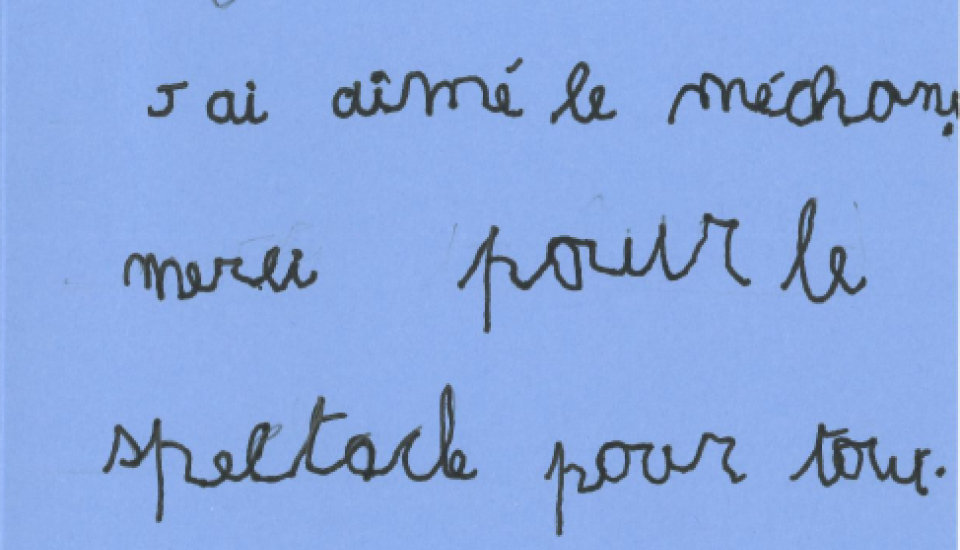 J ai aîmé le méchan
merci pour le
spectacle pour tour.